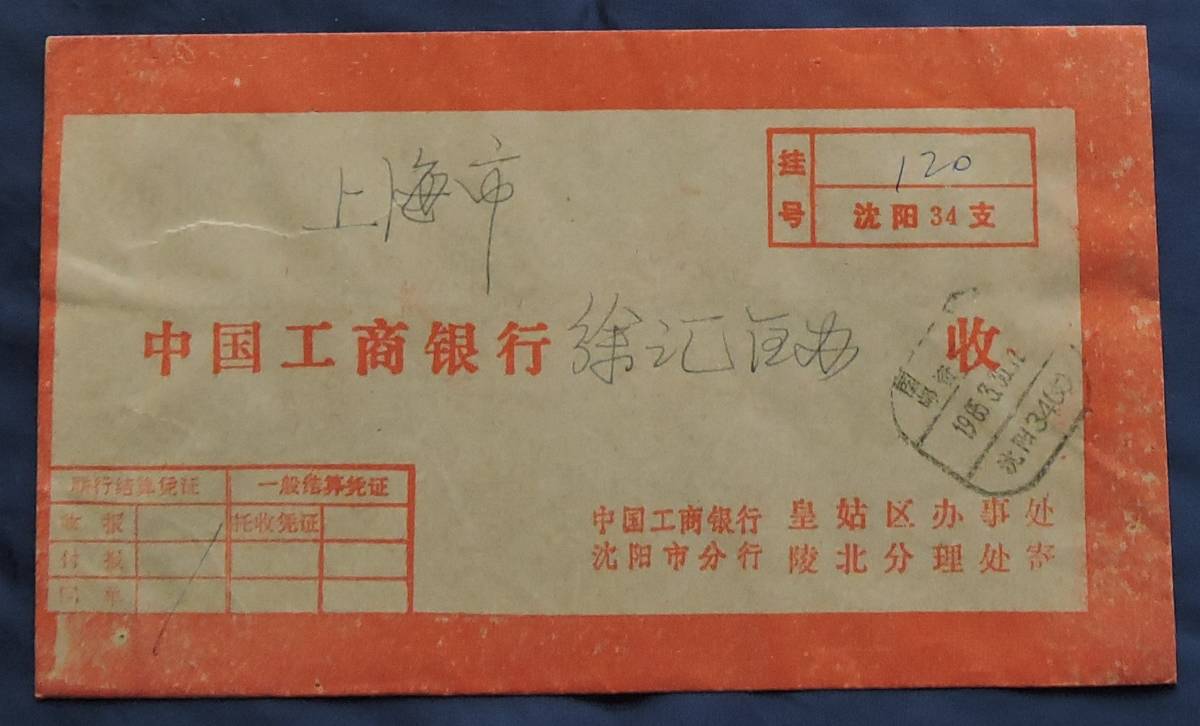 上海市
挂号
120
沈阳34支
中国工商银行徐汇区办 收
1985.3.
沈阳34(支)
联行结算凭证 一般结算凭证
收报 托收凭证
付报
回单
中国工商银行 皇姑区办事处
沈阳市分行 陵北分理处寄